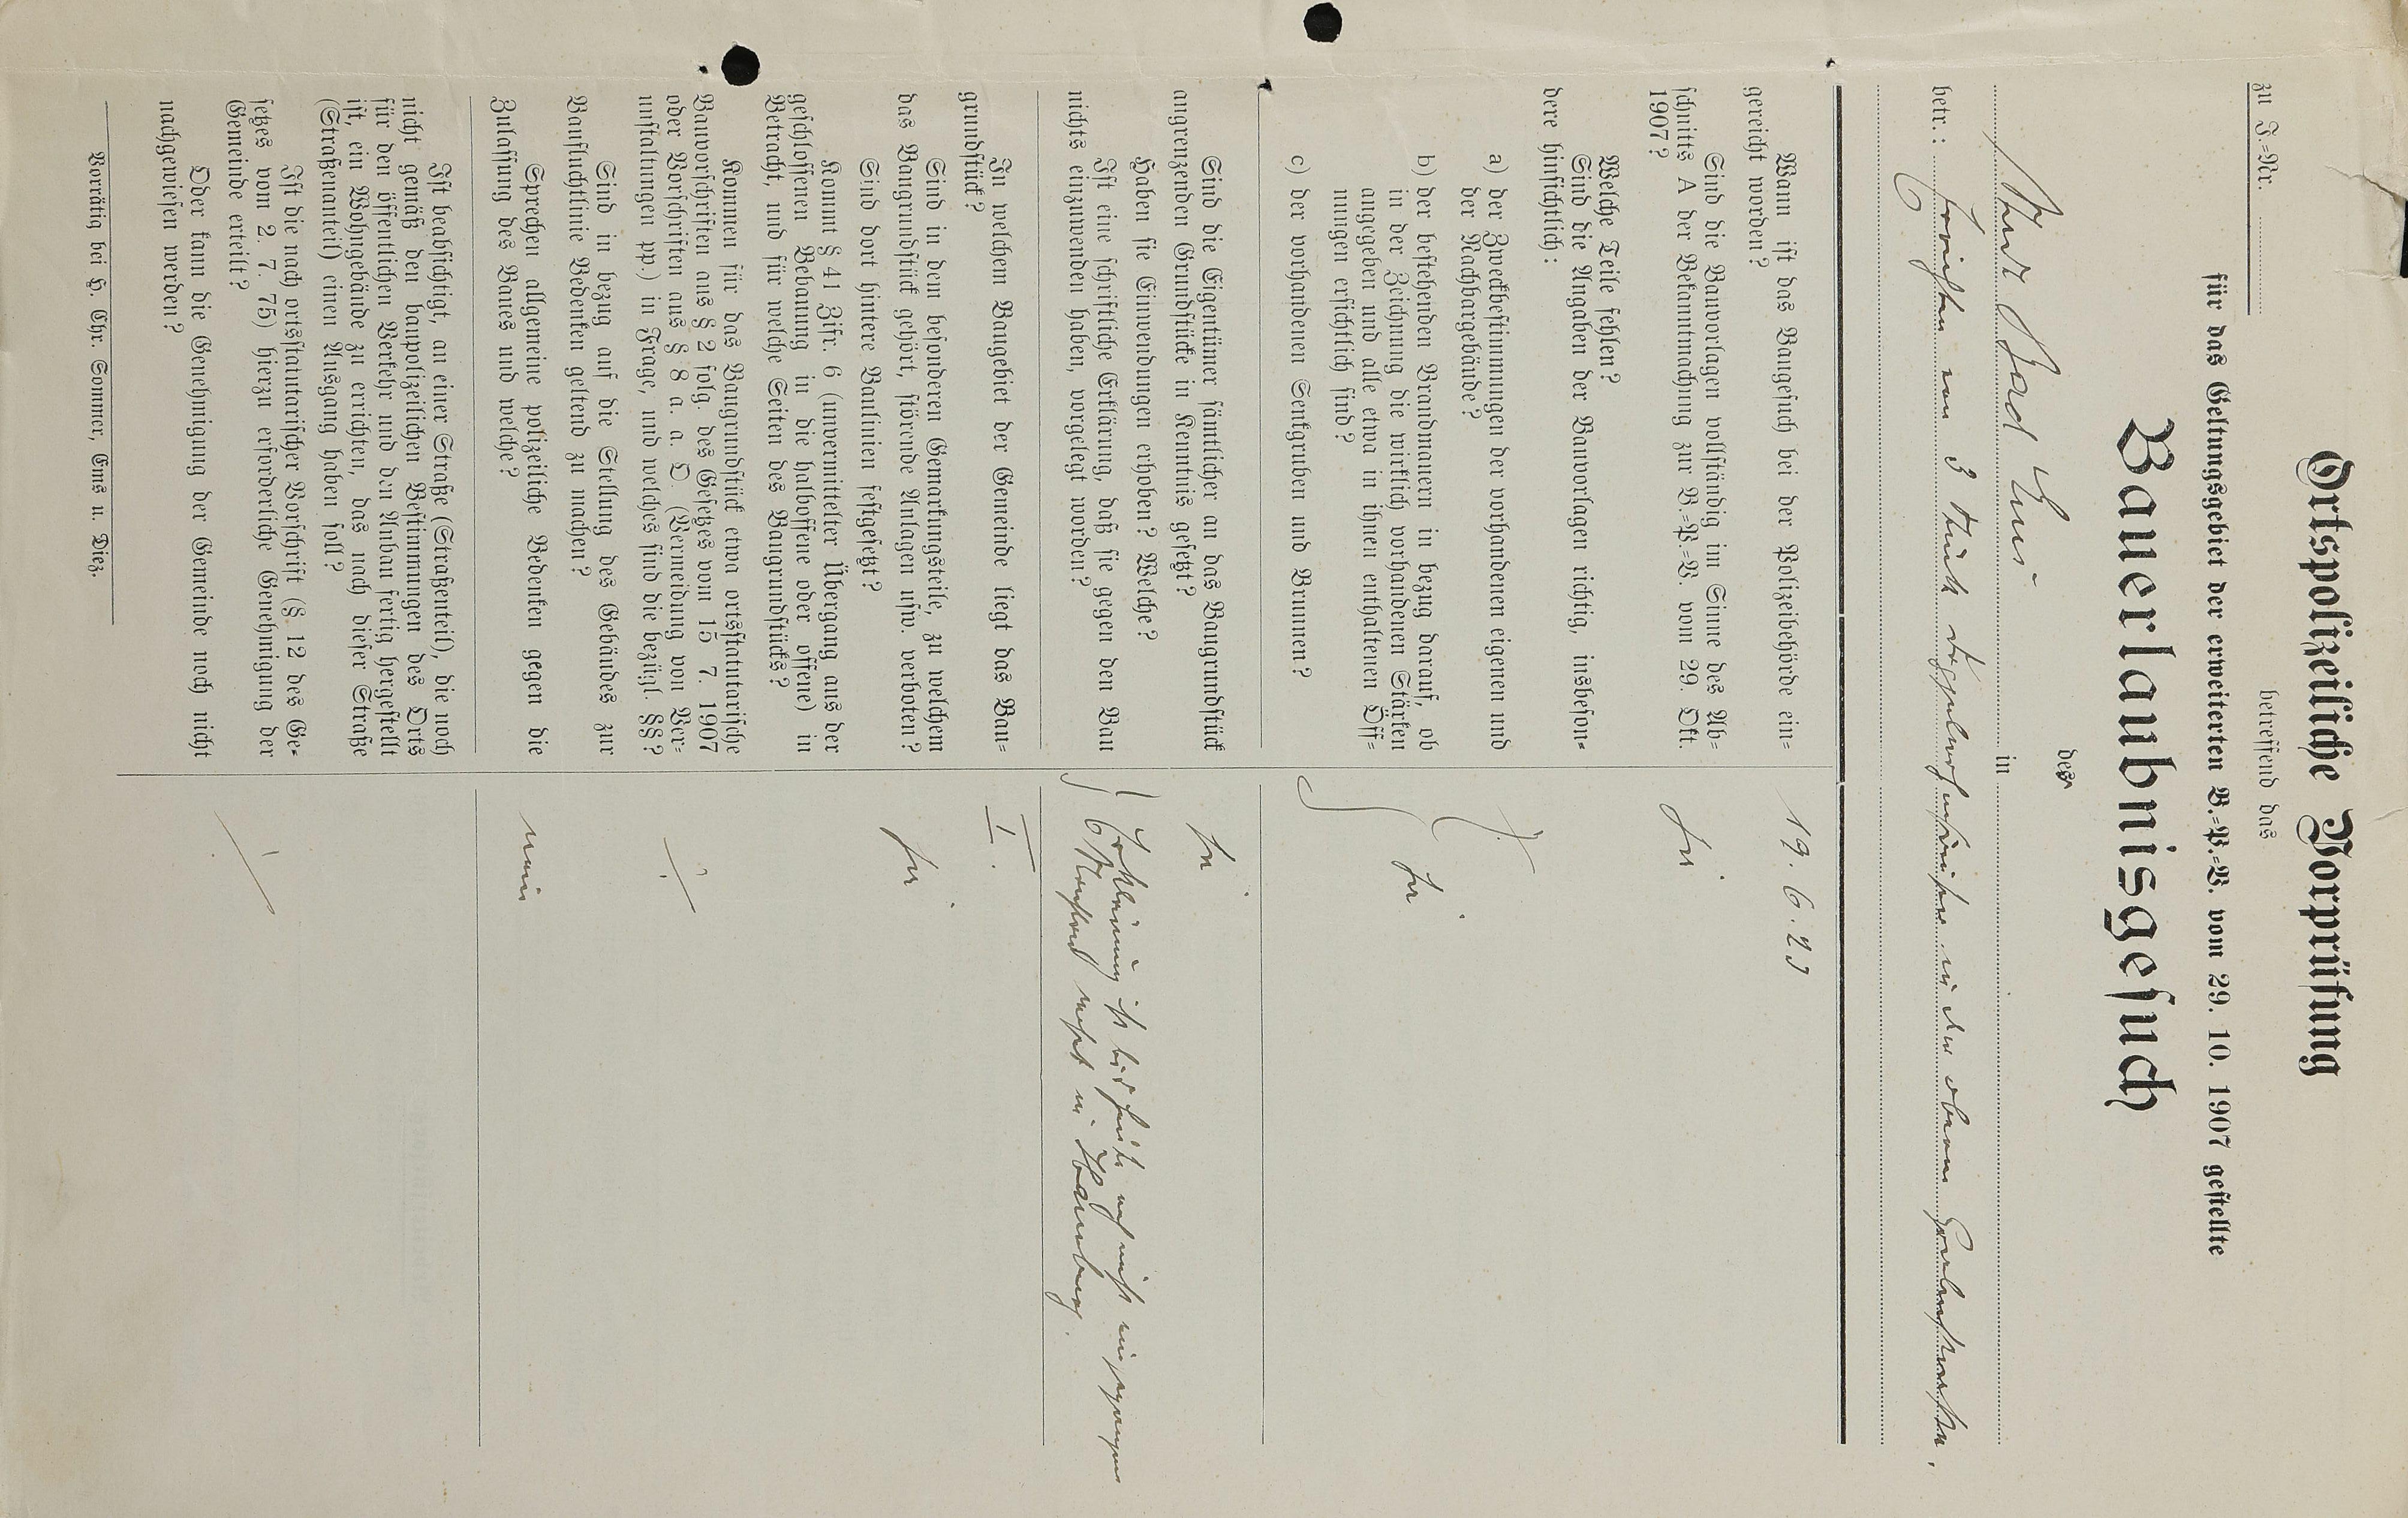 zu J.=Nr.
Ortspolizeiliche Vorprüfung
betreffend das
für das Geltungsgebiet der erweiterten B.=P.=V. vom 29. 10. 1907 gestellte
Bauerlaubnisgesuch
des
Bad Ems in
betr.: Errichten von 3 Stück in der oberen
Wann ist das Baugesuch bei der Polizeibehörde ein=
gereicht worden?
19. 6. 23
Sind die Bauvorlagen vollständig im Sinne des Ab=
schnitts A der Bekanntmachung zur B.=P.=V. vom 29. Okt.
1907?
Ja
Welche Teile fehlen?
Sind die Angaben der Bauvorlagen richtig, insbeson=
dere hinsichtlich:
a) der Zweckbestimmungen der vorhandenen eigenen und
der Nachbargebäude?
b) der bestehenden Brandmauern in bezug darauf, ob
in der Zeichnung die wirklich vorhandenen Stärken
angegeben und alle etwa in ihnen enthaltenen Öff=
nungen ersichtlich sind?
Ja
c) der vorhandenen Senkgruben und Brunnen?
Sind die Eigentümer sämtlicher an das Baugrundstück
angrenzenden Grundstücke in Kenntnis gesetzt?
Ja
Haben sie Einwendungen erhoben? Welche?
Ist eine schriftliche Erklärung, daß sie gegen den Bau
nichts einzuwenden haben, vorgelegt worden?
Erklärung ist bis heute noch nicht eingegangen
wohnt in Hamburg.
In welchem Baugebiet der Gemeinde liegt das Bau=
grundstück?
I.
Sind in dem besonderen Gemarkungsteile, zu welchem
das Baugrundstück gehört, störende Anlagen usw. verboten?
Ja
Sind dort hintere Baulinien festgesetzt?
Kommt § 41 Zifr. 6 (unvermittelter Übergang aus der
geschlossenen Bebauung in die halboffene oder offene) in
Betracht, und für welche Seiten des Baugrundstücks?
Kommen für das Baugrundstück etwa ortsstatutarische
Bauvorschriften aus § 2 folg. des Gesetzes vom 15 7. 1907
oder Vorschriften aus § 8 a. a. O. (Vermeidung von Ver=
unstaltungen pp.) in Frage, und welches sind die bezügl. §§?
Sind in bezug auf die Stellung des Gebäudes zur
Baufluchtlinie Bedenken geltend zu machen?
Sprechen allgemeine polizeiliche Bedenken gegen die
Zulassung des Baues und welche?
nein
Ist beabsichtigt, an einer Straße (Straßenteil), die noch
nicht gemäß den baupolizeilichen Bestimmungen des Orts
für den öffentlichen Verkehr und den Anbau fertig hergestellt
ist, ein Wohngebäude zu errichten, das nach dieser Straße
(Straßenanteil) einen Ausgang haben soll?
Ist die nach ortsstatutarischer Vorschrift (§ 12 des Ge=
setzes vom 2. 7. 75) hierzu erforderliche Genehmigung der
Gemeinde erteilt?
Oder kann die Genehmigung der Gemeinde noch nicht
nachgewiesen werden?
Vorrätig bei H. Chr. Sommer, Ems u. Diez.